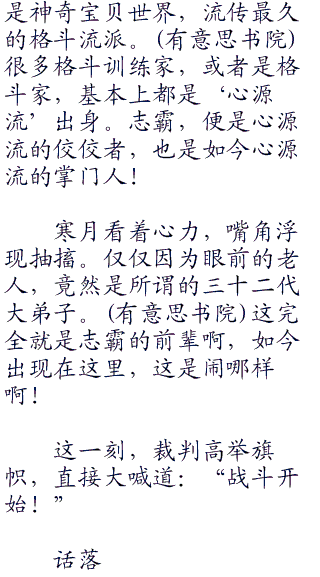 是神奇宝贝世界，流传最久
的格斗流派。(有意思书院)
很多格斗训练家，或者是格
斗家，基本上都是‘心源
流’出身。志霸，便是心源
流的佼佼者，也是如今心源
流的掌门人！
寒月看着心力，嘴角浮
现抽搐。仅仅因为眼前的老
人，竟然是所谓的三十二代
大弟子。(有意思书院)这完
全就是志霸的前辈啊，如今
出现在这里，这是闹哪样
啊！
这一刻，裁判高举旗
帜，直接大喊道：“战斗开
始！”
话落